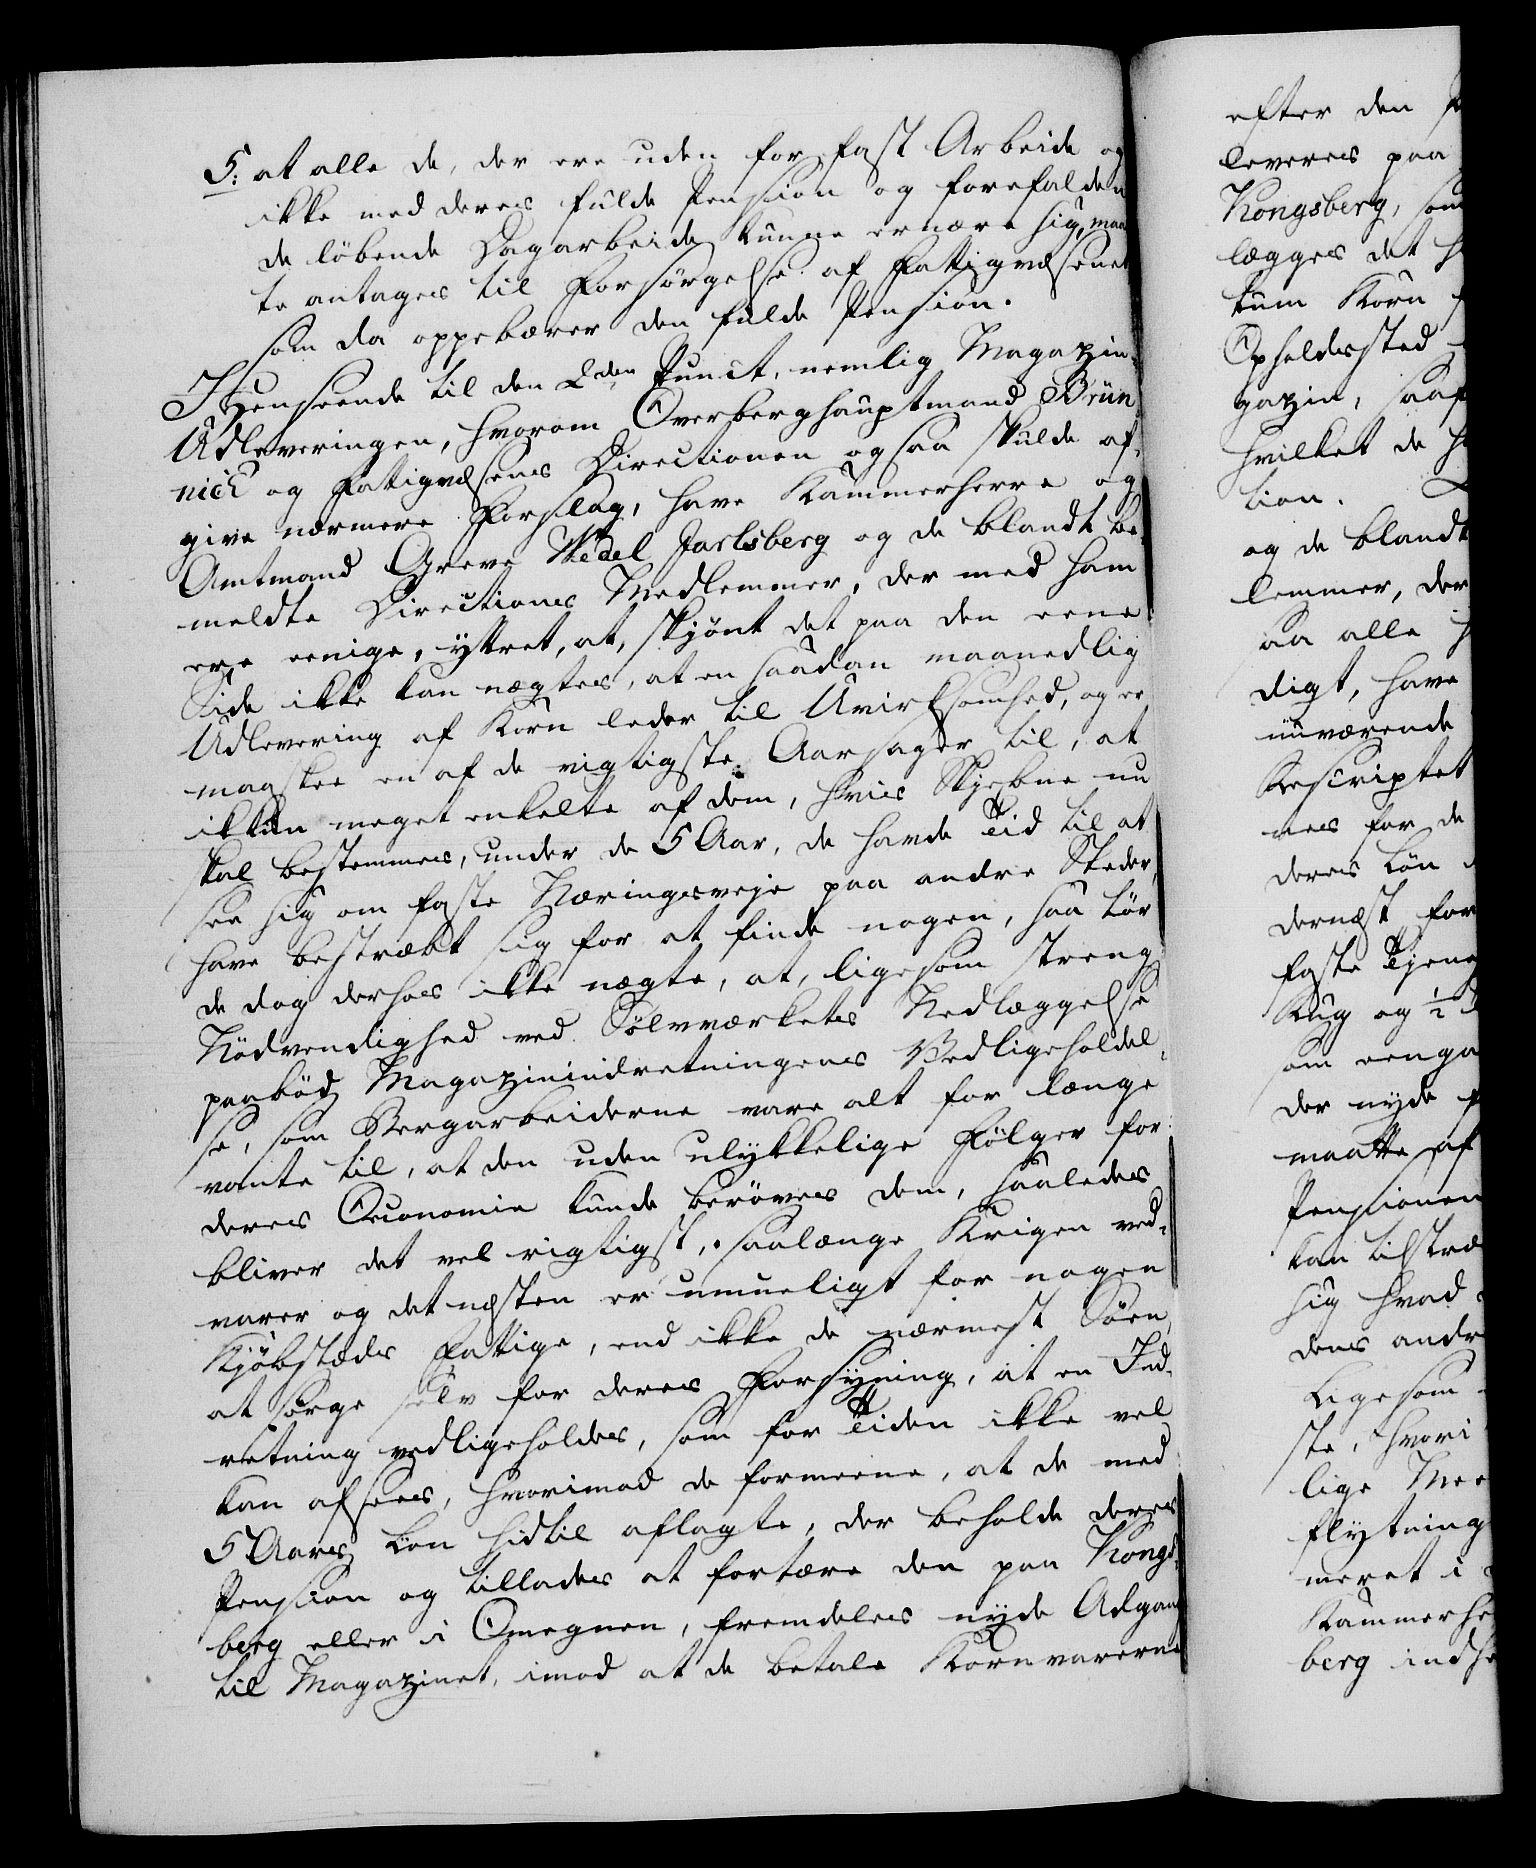 5: at alle de, der ere uden for fast Arbeide og
ikke med deres fulde Pension og forefalden
de løbende Dagarbeide kunne ernære sig, maa
te antages til Forsørgelse af Fattigvæsenet
som da oppebærer den fulde Pension.
I Henseende til den 2den Punct, nemlig Magazin-
Udleveringen, hvorom Overberghauptmand Brün
nich og Fattigvæsens Directionen ogsaa skulde af-
give nærmere Forslag, have Kammerherre og
Amtmand Greve Wedel Jarlsberg og de blandt be-
meldte Directions Medlemmer, der med ham
ere eenige, yttret, at, skjønt det paa den eene
Side ikke kan nægtes, at en saadan maanedlig
Udlevering af Korn leder til Uvirksomhed, og er
maaskee en af de vigtigste Aarsager til, at
ikkun meget enkelte af dem, hvis Skjebne nu
skal bestemmes, under de 5 Aar, de havde Tid til at
see sig om faste Næringsveje paa andre Steder,
have bestræbt sig for at finde nogen, saa tør
de dog derhos ikke nægte, at, ligesom streng
Nödvendighed ved Sölvværkets Nedlæggelse
paabød Magazinindretningens Vedligeholdel-
se, som Bergarbeiderne vare alt for længe
vante til, at den uden ulykkelige Følger for
deres Oeconomie kunde berøves dem, saaledes
bliver det vel rigtigst, saalænge Krigen ved-
varer og det næsten er umueligt for nogen
Kjøbstæds Fattige, end ikke de nærmest Søen,
at sørge selv for deres Forsyning, at en Ind-
retning vedligeholdes, som for Tiden ikke vel
kan afsees, hvorimod de formeene, at de med
5 Aars Løn hidtil aflagte, der beholde deres
Pension og tillades at fortære den paa Kongs-
berg eller i Omegnen, fremdeles nyde Adgang
til Magazinet, imod at de betale Kornvarerne
efter den
leveres paa
Kongsberg, som
lægges det
tum Korn
Opholdssted
gazin, saaf
hvilket de
tion.
og de blandt
lemmer, der
aa alle
digt, have
nuværende
Rescriptet
nes for de
deres Løn
dernæst for
faste Tjene
Rug og ½
om eenga
der nyde
maatte af
Pensionen
kan tilstræ
sig hvad
dens andr
Ligesom
ste, hvori
lige Mee
flytning
meret i
Kammerhe
berg indh